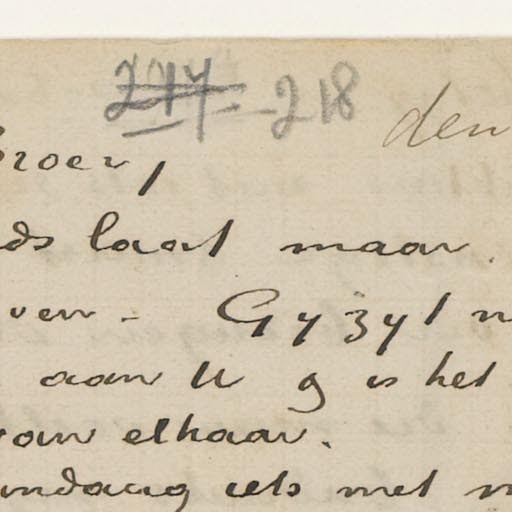 217 218 den
Broer,
ds laat maar.
ven - Gyzyt n
aan U g is het
van elkaar.
andaag iets met